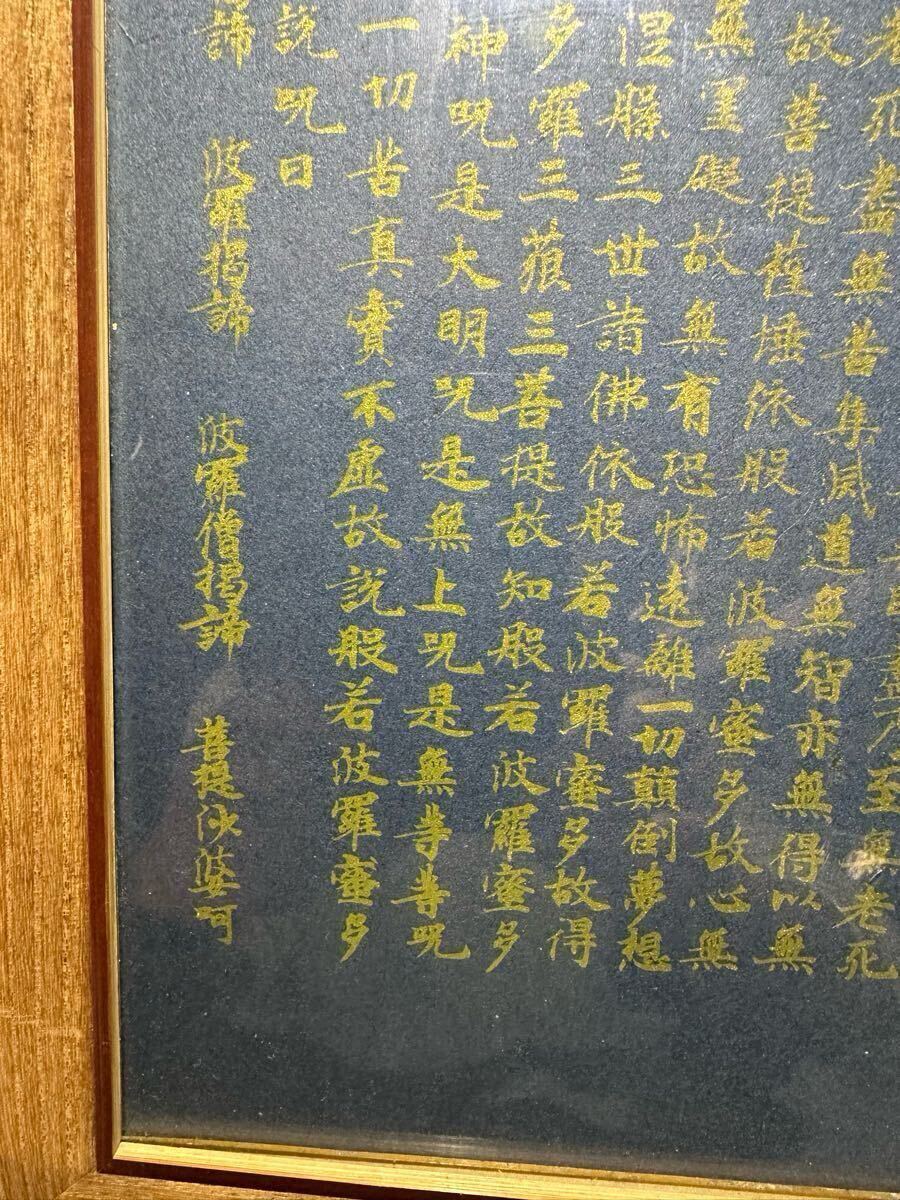 盡乃至無老死
老死盡無苦集滅道無智亦無得以無
故菩提薩埵依般若波羅蜜多故心無
無罣礙故無有恐怖遠離一切顛倒夢想
涅槃三世諸佛依般若波羅蜜多故得
多羅三藐三菩提故知般若波羅蜜多
神呪是大明呪是無上呪是無等等呪
一切苦真實不虚故説般若波羅蜜多
説呪曰
諦 波羅揭諦 波羅僧揭諦 菩提沙婆呵